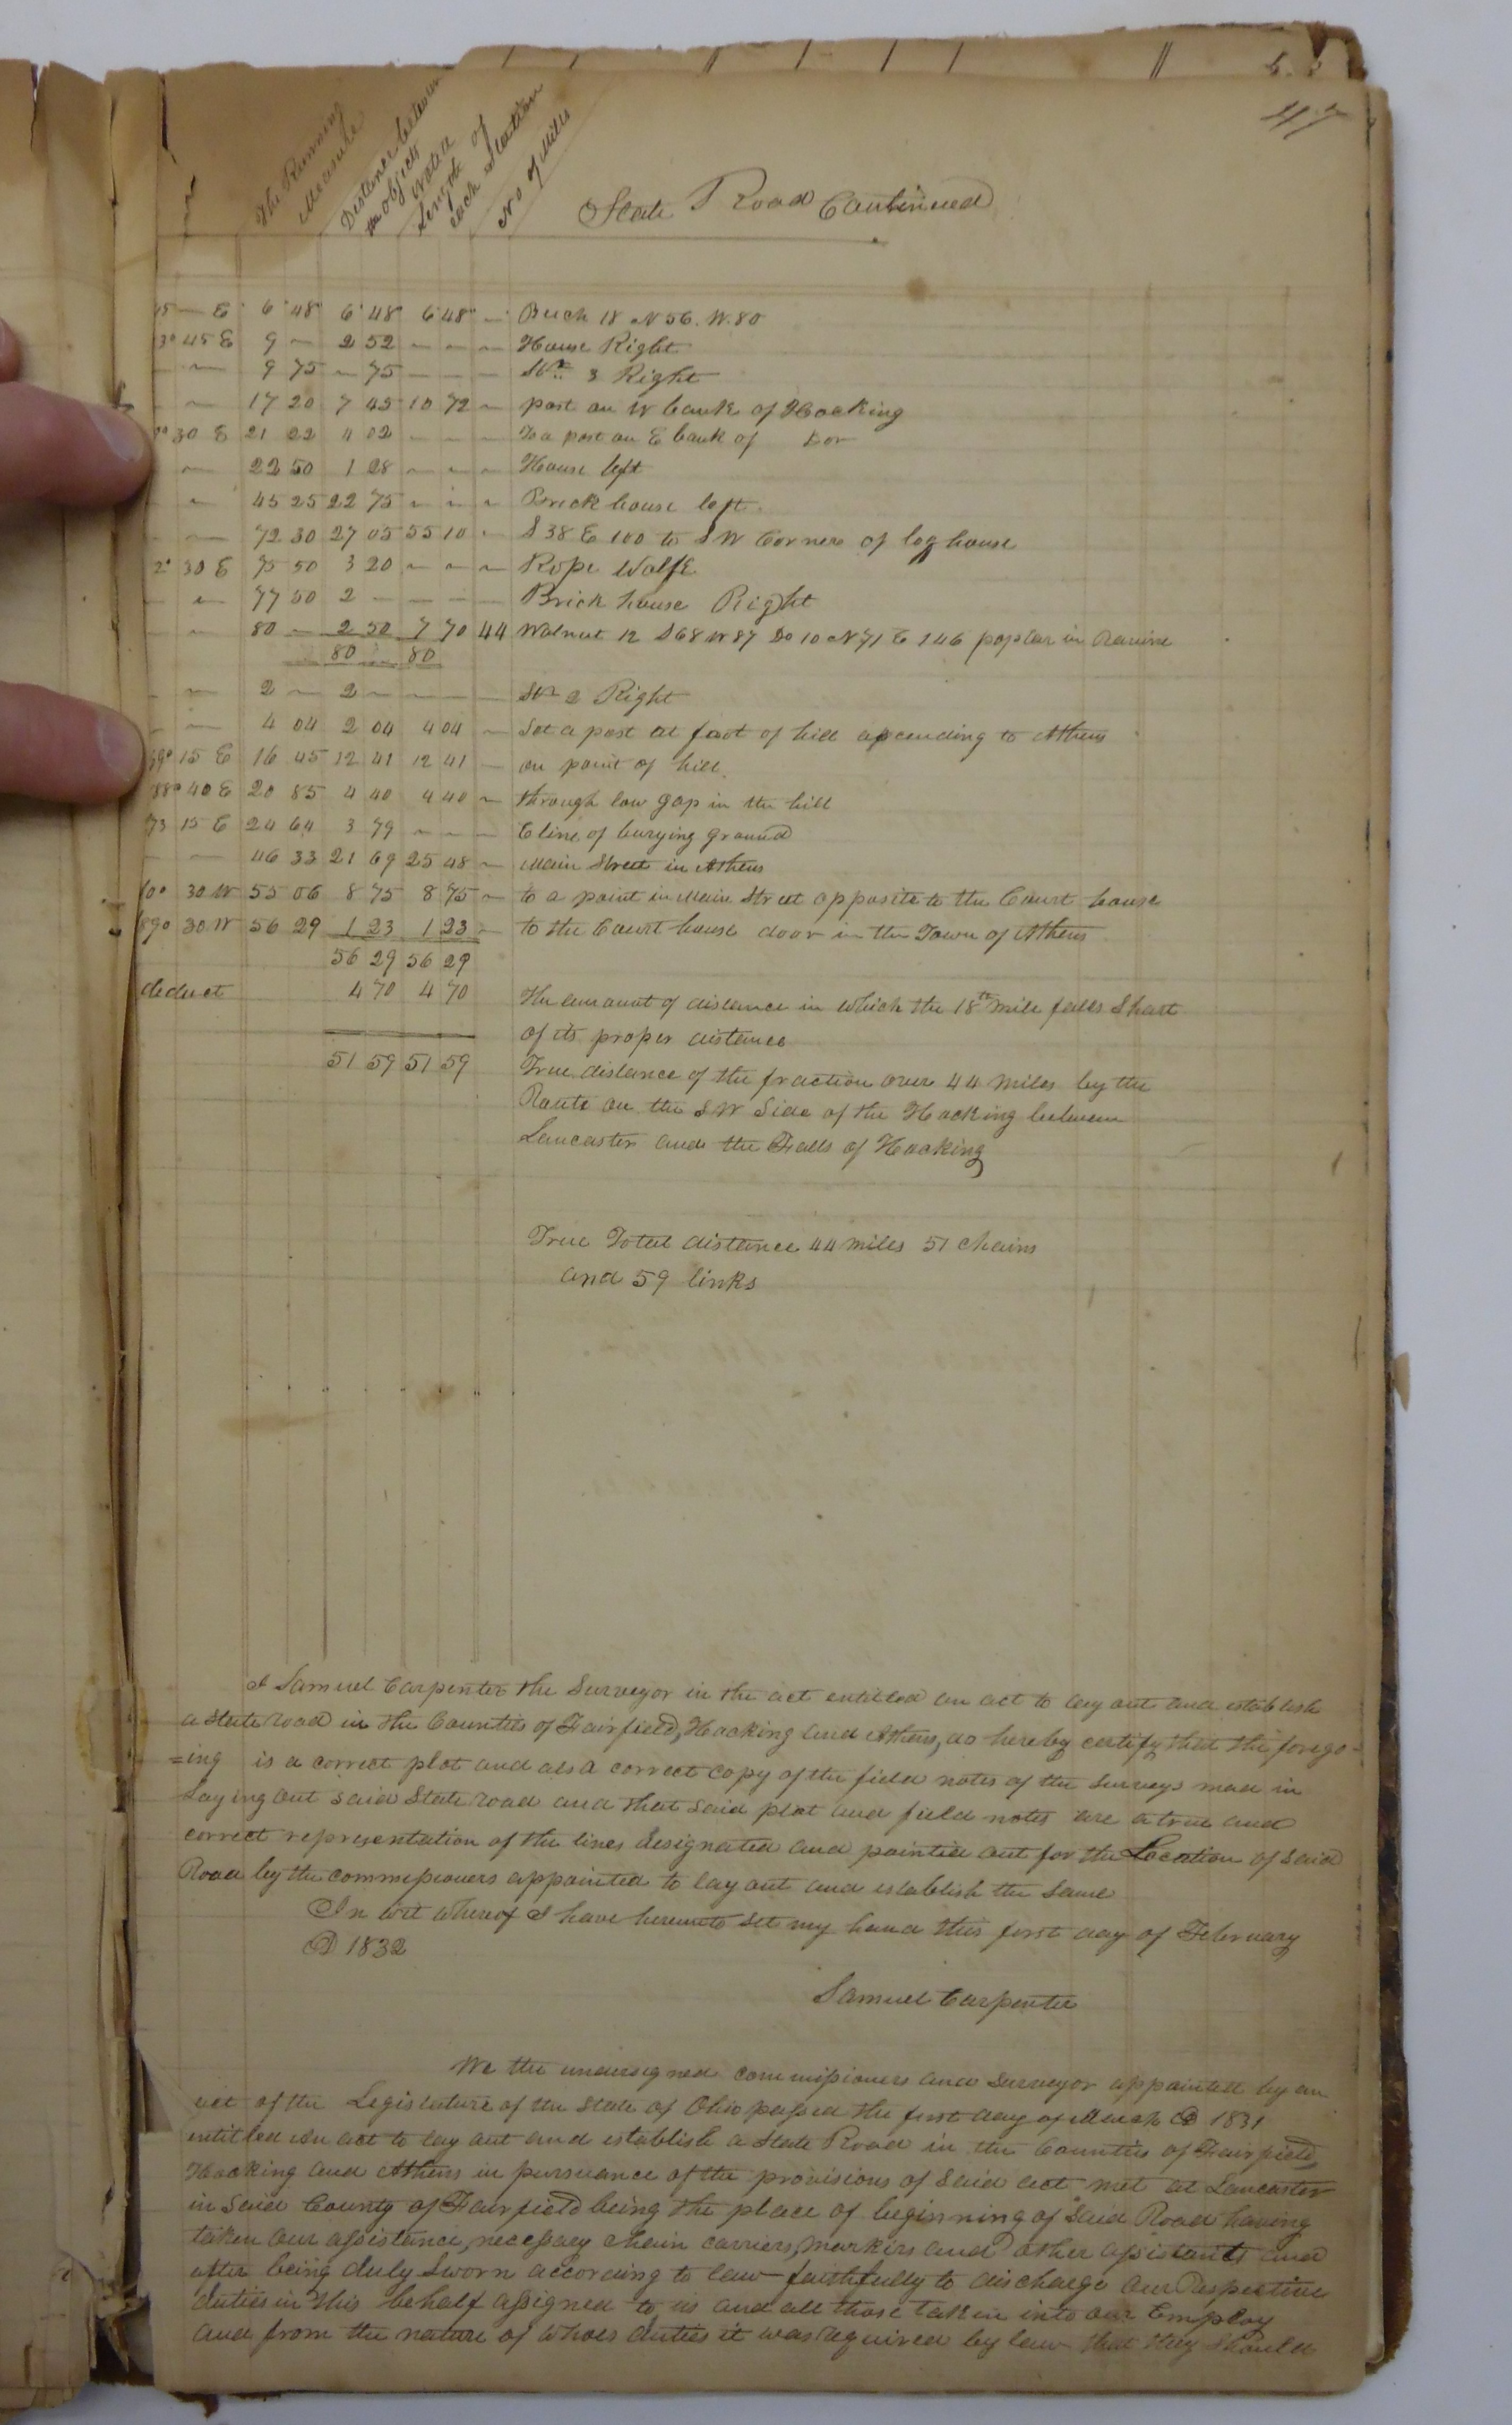 47
The Running Measure
Distance between the objects noted
Length of each Station
No of Miles
State Road Continued
15 — E 6 48 6 48 6 48 — Beech 18 N 56. W. 80
45 E 9 — 2 52 — — — House Right
— — 9 75 — 75 — — — Stn 3 Right
— — 17 20 7 45 10 72 — post on W bank of Hocking
30 E 21 22 4 02 — — — To a post on E bank of Do
— 22 50 1 28 — — — House left
— 45 25 22 75 — — — Brick house left
— — 72 30 27 05 55 10 — S 38 E 100 to S W Corner of log house
2° 30 E 75 50 3 20 — — — Rope Walk
— — 77 50 2 — — — — Brick house Right
— — 80 — 2 50 7 70 44 Walnut 12 S 68 W 87 Do 10 N 71 E 146 poplar in Ravine
80 — 80
— — 2 — 2 — — — — Stn 2 Right
— — 4 04 2 04 4 04 — Set a post at foot of hill ascending to Athens
15 E 16 45 12 41 12 41 — on point of hill
88° 40 E 20 85 4 40 4 40 — through low gap in the hill
73 15 E 24 64 3 79 — — — E line of burying ground
— — 46 33 21 69 25 48 — Main Street in Athens
30 W 55 06 8 75 8 75 — to a point in Main Street opposite to the Court house
89° 30 W 56 29 1 23 1 23 — to the Court house door in the Town of Athens
56 29 56 29
deduct 4 70 4 70 The amount of distance in which the 18th mile falls Short
of its proper distance
51 59 51 59 True distance of the fraction over 44 Miles by the
Route on the S W Side of the Hocking between
Lancaster and the Falls of Hocking
True Total distance 44 miles 51 Chains
and 59 links
I Samuel Carpenter the Surveyor in the act entitled an act to lay out and establish
a State road in the Counties of Fairfield, Hocking and Athens, do hereby certify that the forego-
=ing is a correct plot and also a correct copy of the field notes of the Surveys mad in
Laying out said State road and that said plat and field notes are a true and
correct representation of the lines designated and pointed out for the Location of said
Road by the commissioners appointed to lay out and establish the same
In wit whereof I have hereunto set my hand this first day of February
AD 1832
Samuel Carpenter
We the undersigned commissioners and Surveyor appointed by an
act of the Legislature of the State of Ohio passed the first day of March AD 1831
entitled An act to lay out and establish a State Road in the Counties of Fairfield,
Hocking and Athens in pursuance of the provisions of said act met at Lancaster
in said County of Fairfield being the place of beginning of said Road having
taken our assistance, necessary chain carriers, markers and other assistants and
after being duly sworn according to law faithfully to discharge our Respective
duties in this behalf assigned to us and all those taken into our Employ
and from the nature of whoes duties it was required by law that they should